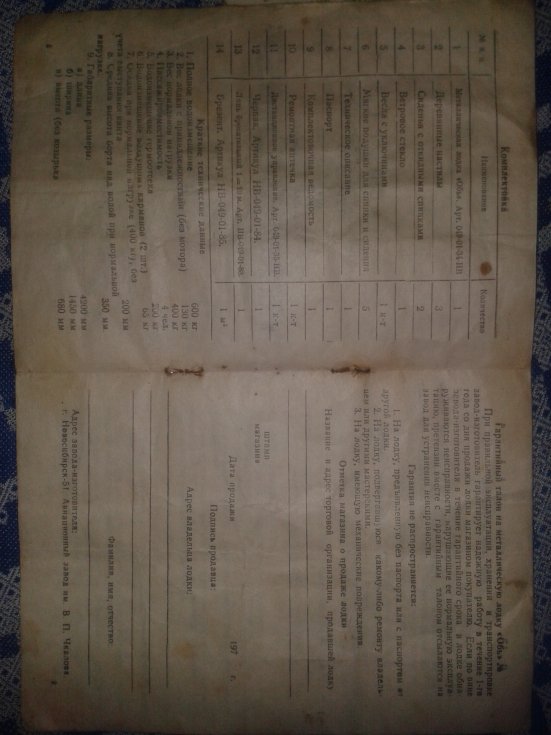 Комплектовка
№ п/п Наименование Количество
1 Металлическая лодка «Обь». Арт. 049-01-34-НВ 1
2 Деревянные пастилы 3
3 Сидения с откидными спинками 2
4 Ветровое стекло 1
5 Весла с уключинами 1 к-т
6 Мягкие подушки для спинки и сидения 5
7 Техническое описание 1
8 Паспорт 1
9 Комплектовочная ведомость 1
10 Ремонтная аптечка 1 к-т
11 Дистанционное управление. Арт. 1 к-т.
12 Чехлы. Артикул НВ-049-01-84. 1
13 Лоц. 1
14 Брезент. Артикул НВ-049-01-85. 1 к-т
Краткие технические данные
1. Полное водоизмещение 600 кг
2. Вес лодки с принадлежностями (без мотора) 150 кг
3. Вес полезной нагрузки 400 кг
4. Пассажировместимость 4 чел.
5. Водоизмещение 250 кг
6. Водоизмещение воздушных карманов (2 шт.) 65 кг
7. Осадка при нормальной нагрузке (400 кг), без
учета выступания винта 200 мм
8. Средняя высота борта над водой при нормальной
нагрузке 350 мм
9. Габаритные размеры:
а) длина 4200 мм
б) ширина 1450 мм
в) высота (без козырька) 680 мм
Гарантийный талон на металлическую лодку «Обь» №
При правильной эксплуатации, хранении и транспортировке
завод-изготовитель гарантирует надежную работу в течение 1-го
года со дня продажи лодки магазином покупателю. Если по вине
завода-изготовителя в течение гарантийного срока в лодке обна-
руживаются неисправности, нарушающие ее нормальную эксплуа-
тацию, претензии вместе с гарантийным талоном отсылаются на
завод для устранения неисправности.
Гарантия не распространяется:
1. На лодку, предъявленную без паспорта или с паспортом от
другой лодки.
2. На лодку, подвергавшуюся какому-либо ремонту владель-
цем или другими мастерскими.
3. На лодку, имеющую механические повреждения
Отметка магазина о продаже лодки
Название и адрес торговой организации, продавшей лодку
штамп
магазина
Дата продажи 197 г.
Подпись продавца:
Адрес владельца лодки:
Фамилия, имя, отчество:
Адрес завода-изготовителя:
г. Новосибирск-51 Авиационный завод им. В. П. Чкалова.